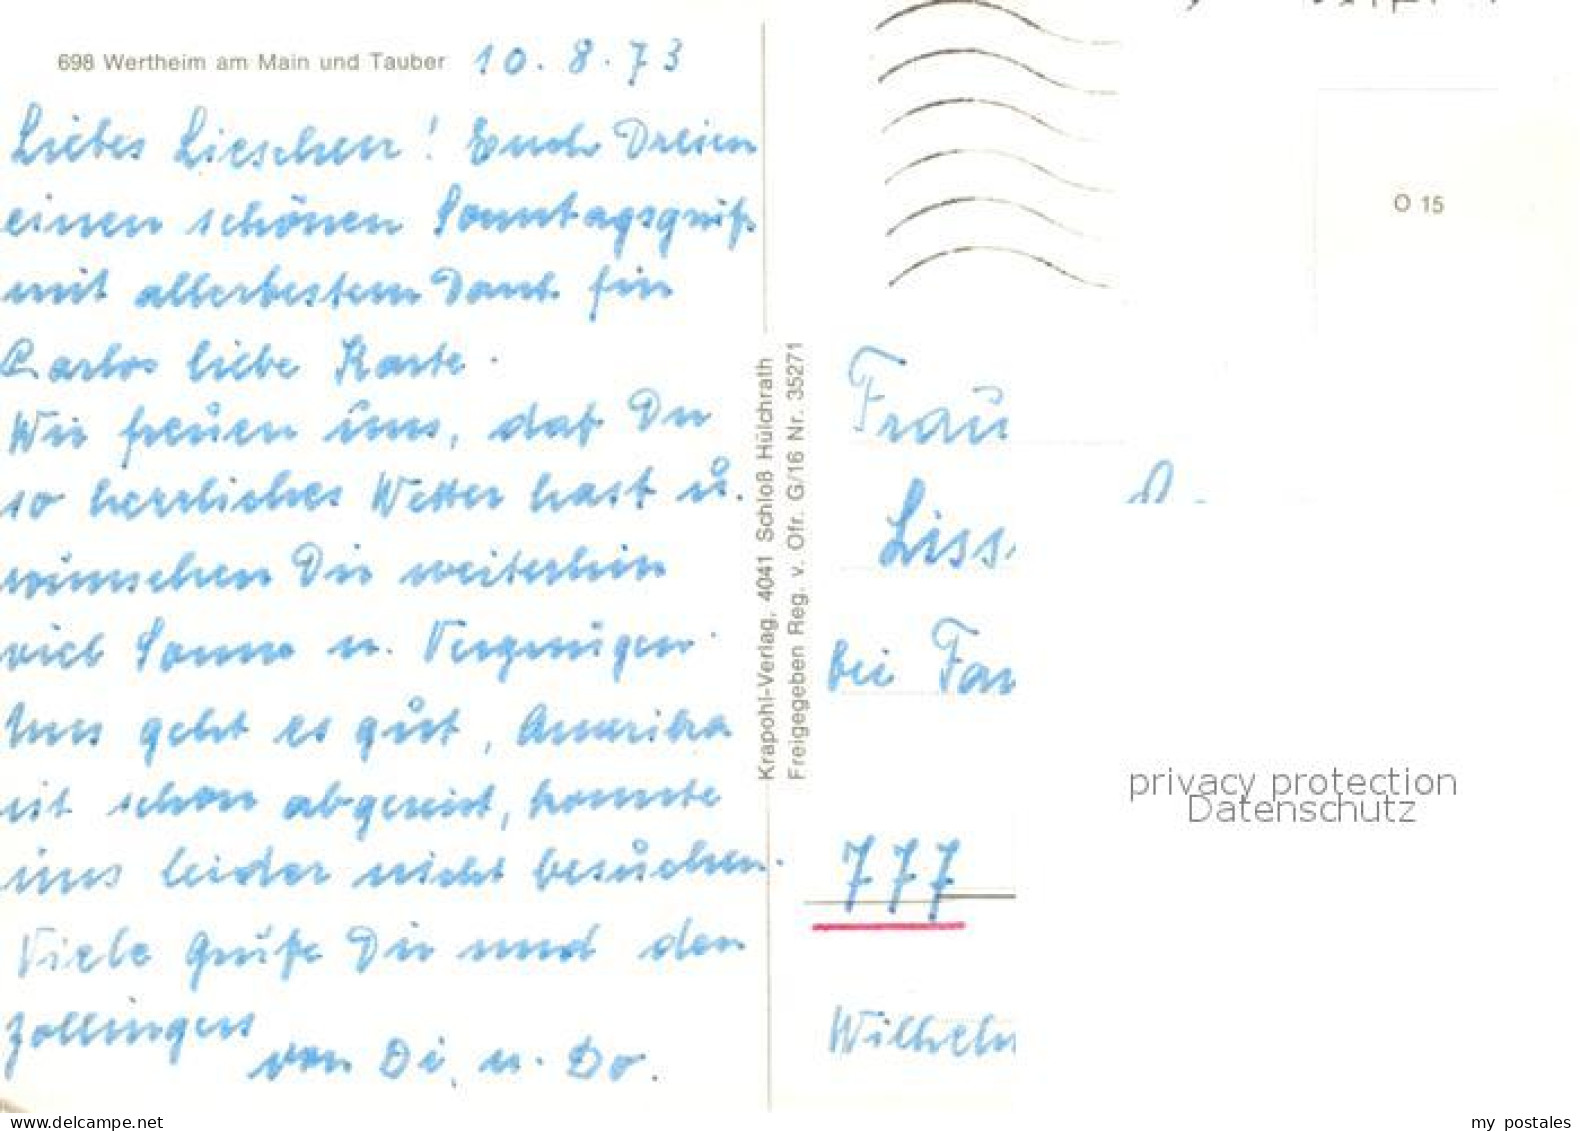 698 Wertheim am Main und Tauber 10.8.73
Liebes Lieschen! Euch Dreien
einen schönen Sonntagsgruß
mit allerbestem Dank für
Carlos liebe Karte.
Wir freuen uns, daß Du
so herrliches Wetter hast u.
wünschen Dir weiterhin
viel Sonne u. Vergnügen.
Uns geht es gut, Annerika
ist schon abgereist, konnte
uns leider nicht besuchen.
Viele Grüße Dir und den
Zollingers
von Di. u. Do.
Krapohl-Verlag, 4041 Schloß Hülchrath
Freigegeben Reg. v. Ofr. G/16 Nr. 35271
O 15
Frau
Liss
bei Fam
777
Wilhelm
privacy protection
Datenschutz
www.delcampe.net
my_postales